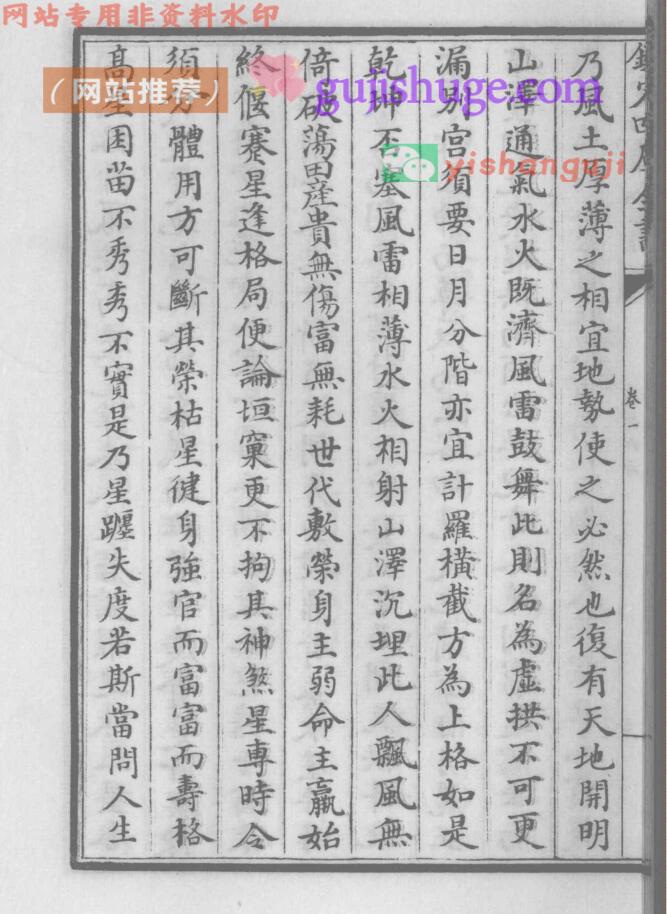 网站专用非资料水印
（网站推荐）
gujishuge.com
yishanguji
卷一
乃風土厚薄之相宜地勢使之必然也復有天地開明
山澤通氣水火既濟風雷鼓舞此則名為虛拱不可更
漏別宫須要日月分階亦宜計羅橫截方為上格如是
乾坤否塞風雷相薄水火相射山澤沉埋此人飄風無
倍破蕩田產貴無傷富無耗世代敷榮身主弱命主羸始
終偃蹇星逢格局便論垣窠更不拘其神煞星專時令
須分體用方可斷其榮枯星健身強官而富富而壽格
髙星困苗不秀秀不實是乃星躔失度若斯當問人生